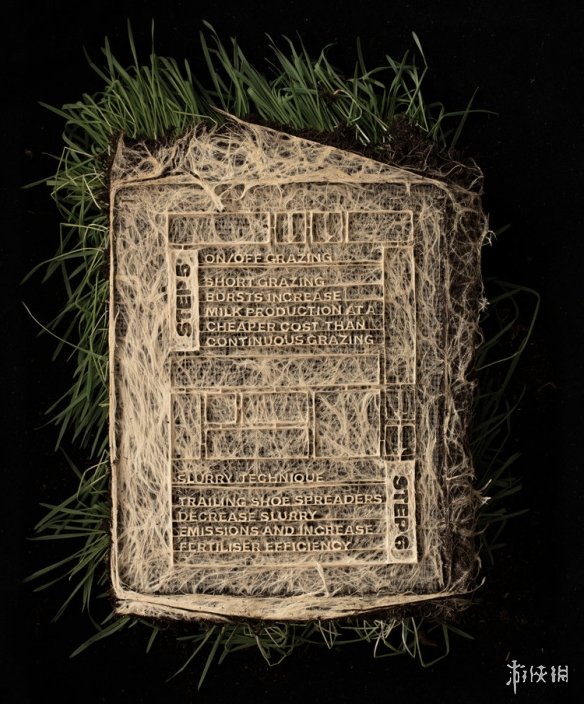 STEP 5
ON/OFF GRAZING
SHORT GRAZING
BURSTS INCREASE
MILK PRODUCTION AT A
CHEAPER COST THAN
CONTINUOUS GRAZING
SLURRY TECHNIQUE
TRAILING SHOE SPREADERS
DECREASE SLURRY
EMISSIONS AND INCREASE
FERTILISER EFFICIENCY
STEP 6
游侠网